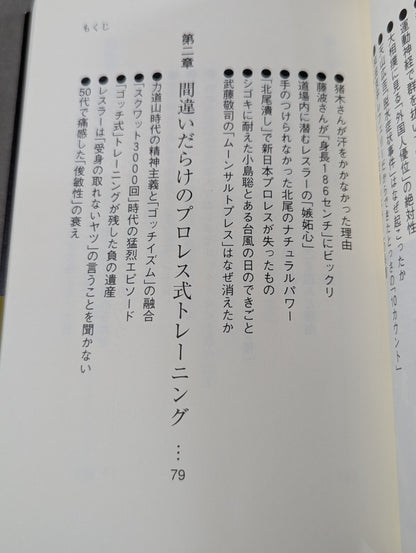 運動神経
大相撲に見る「外国人優位」の絶対性
はなぜ起こったか
「10カウント」
●猪木さんが汗をかかなかった理由
●藤波さんが「身長186センチ」にビックリ
●道場内に潜むレスラーの「嫉妬心」
●手のつけられなかった北尾のナチュラルパワー
●「北尾潰し」で新日本プロレスが失ったもの
●シゴキに耐えた小島聡とある台風の日のできごと
●武藤敬司の「ムーンサルトプレス」はなぜ消えたか
第二章 間違いだらけのプロレス式トレーニング … 79
●力道山時代の精神主義と「ゴッチイズム」の融合
●「スクワット3000回」時代の猛烈エピソード
●「ゴッチ式」トレーニングが残した負の遺産
●レスラーは「受身の取れないヤツ」の言うことを聞かない
●50代で痛感した「俊敏性」の衰え
もくじ